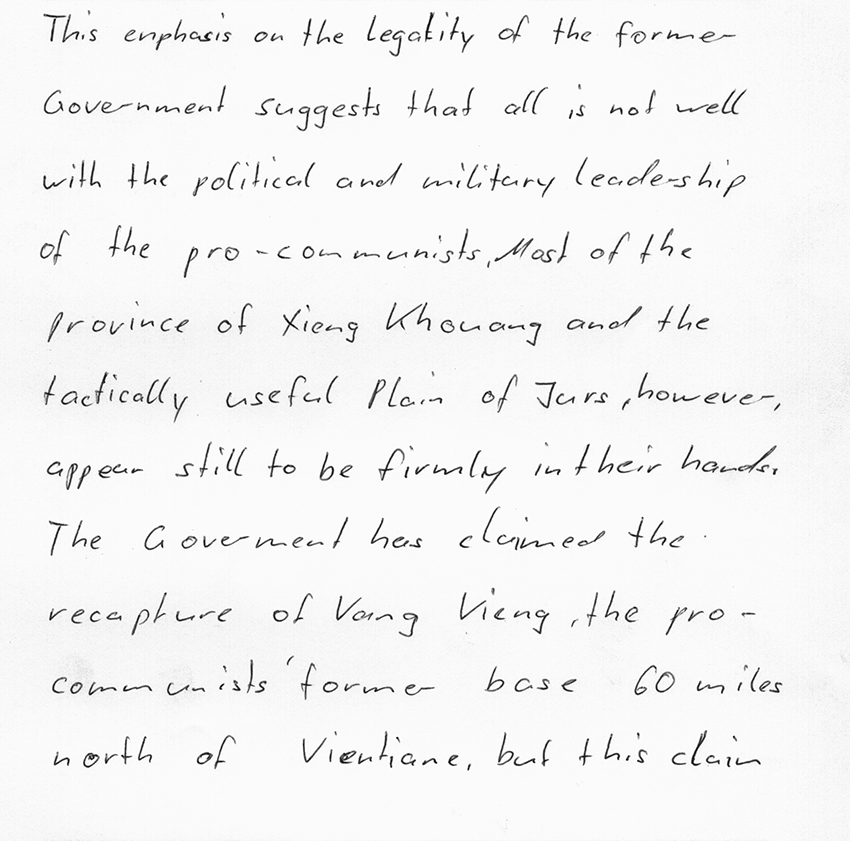 This enphasis on the legality of the former
Government suggests that all is not well
with the political and military leadership
of the pro-communists, Most of the
province of Xieng Khouang and the
tactically useful Plain of Jars, however,
appear still to be firmly in their hands.
The Goverment has claimed the
recapture of Vang Vieng, the pro-
communists' former base 60 miles
north of Vientiane, but this claim